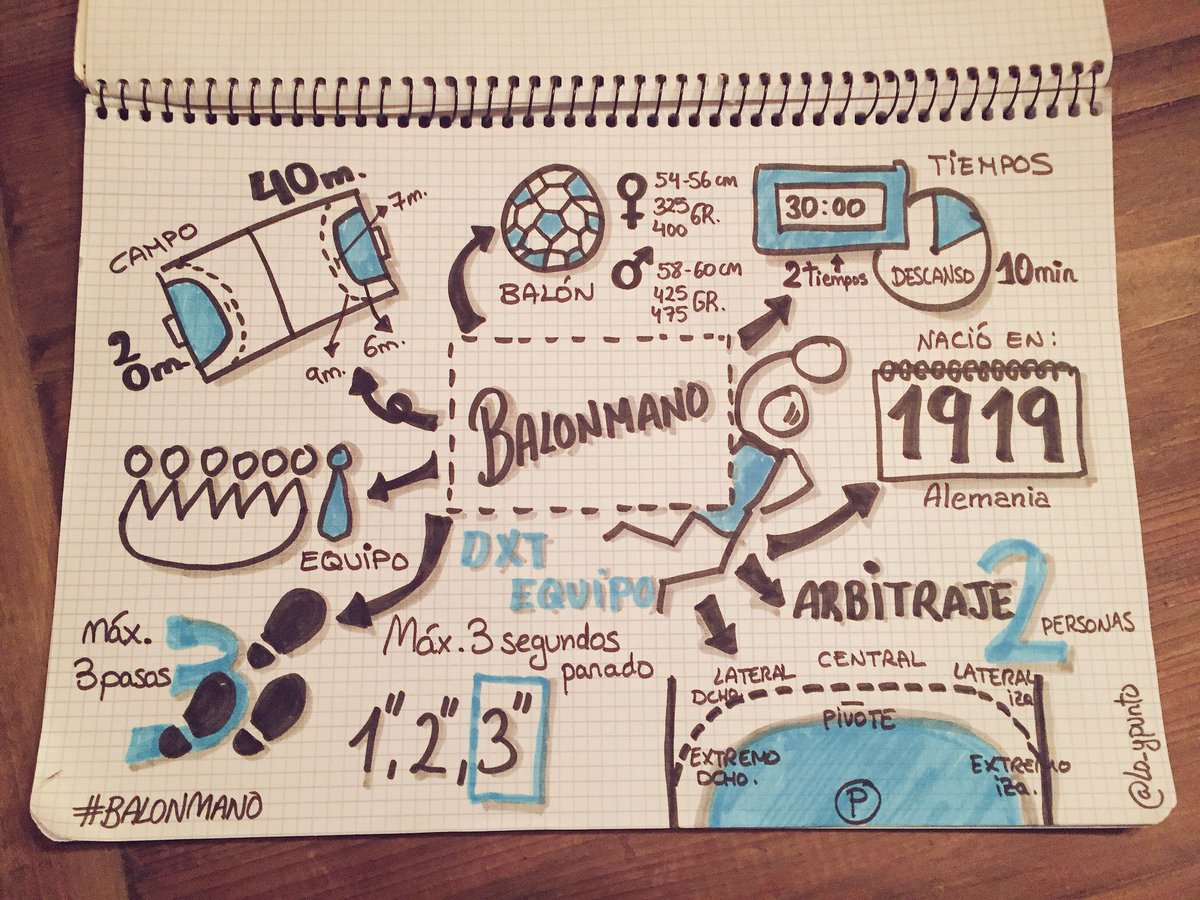 40m.
7m.
CAMPO
20m.
9m.
6m.
BALÓN
♀ 54-56 cm
325
400 GR.
♂ 58-60 cm
425
475 GR.
TIEMPOS
30:00
2 tiempos
DESCANSO
10 min
BALONMANO
DXT
EQUIPO
NACIÓ EN:
1919
Alemania
EQUIPO
ARBITRAJE 2
PERSONAS
máx.
3 pasos
3
Máx. 3 segundos
parado
1", 2", 3"
LATERAL
DCHO.
CENTRAL
LATERAL
izq.
PIVOTE
EXTREMO
DCHO.
EXTREMO
izq.
P
#BALONMANO
@la_ypunto